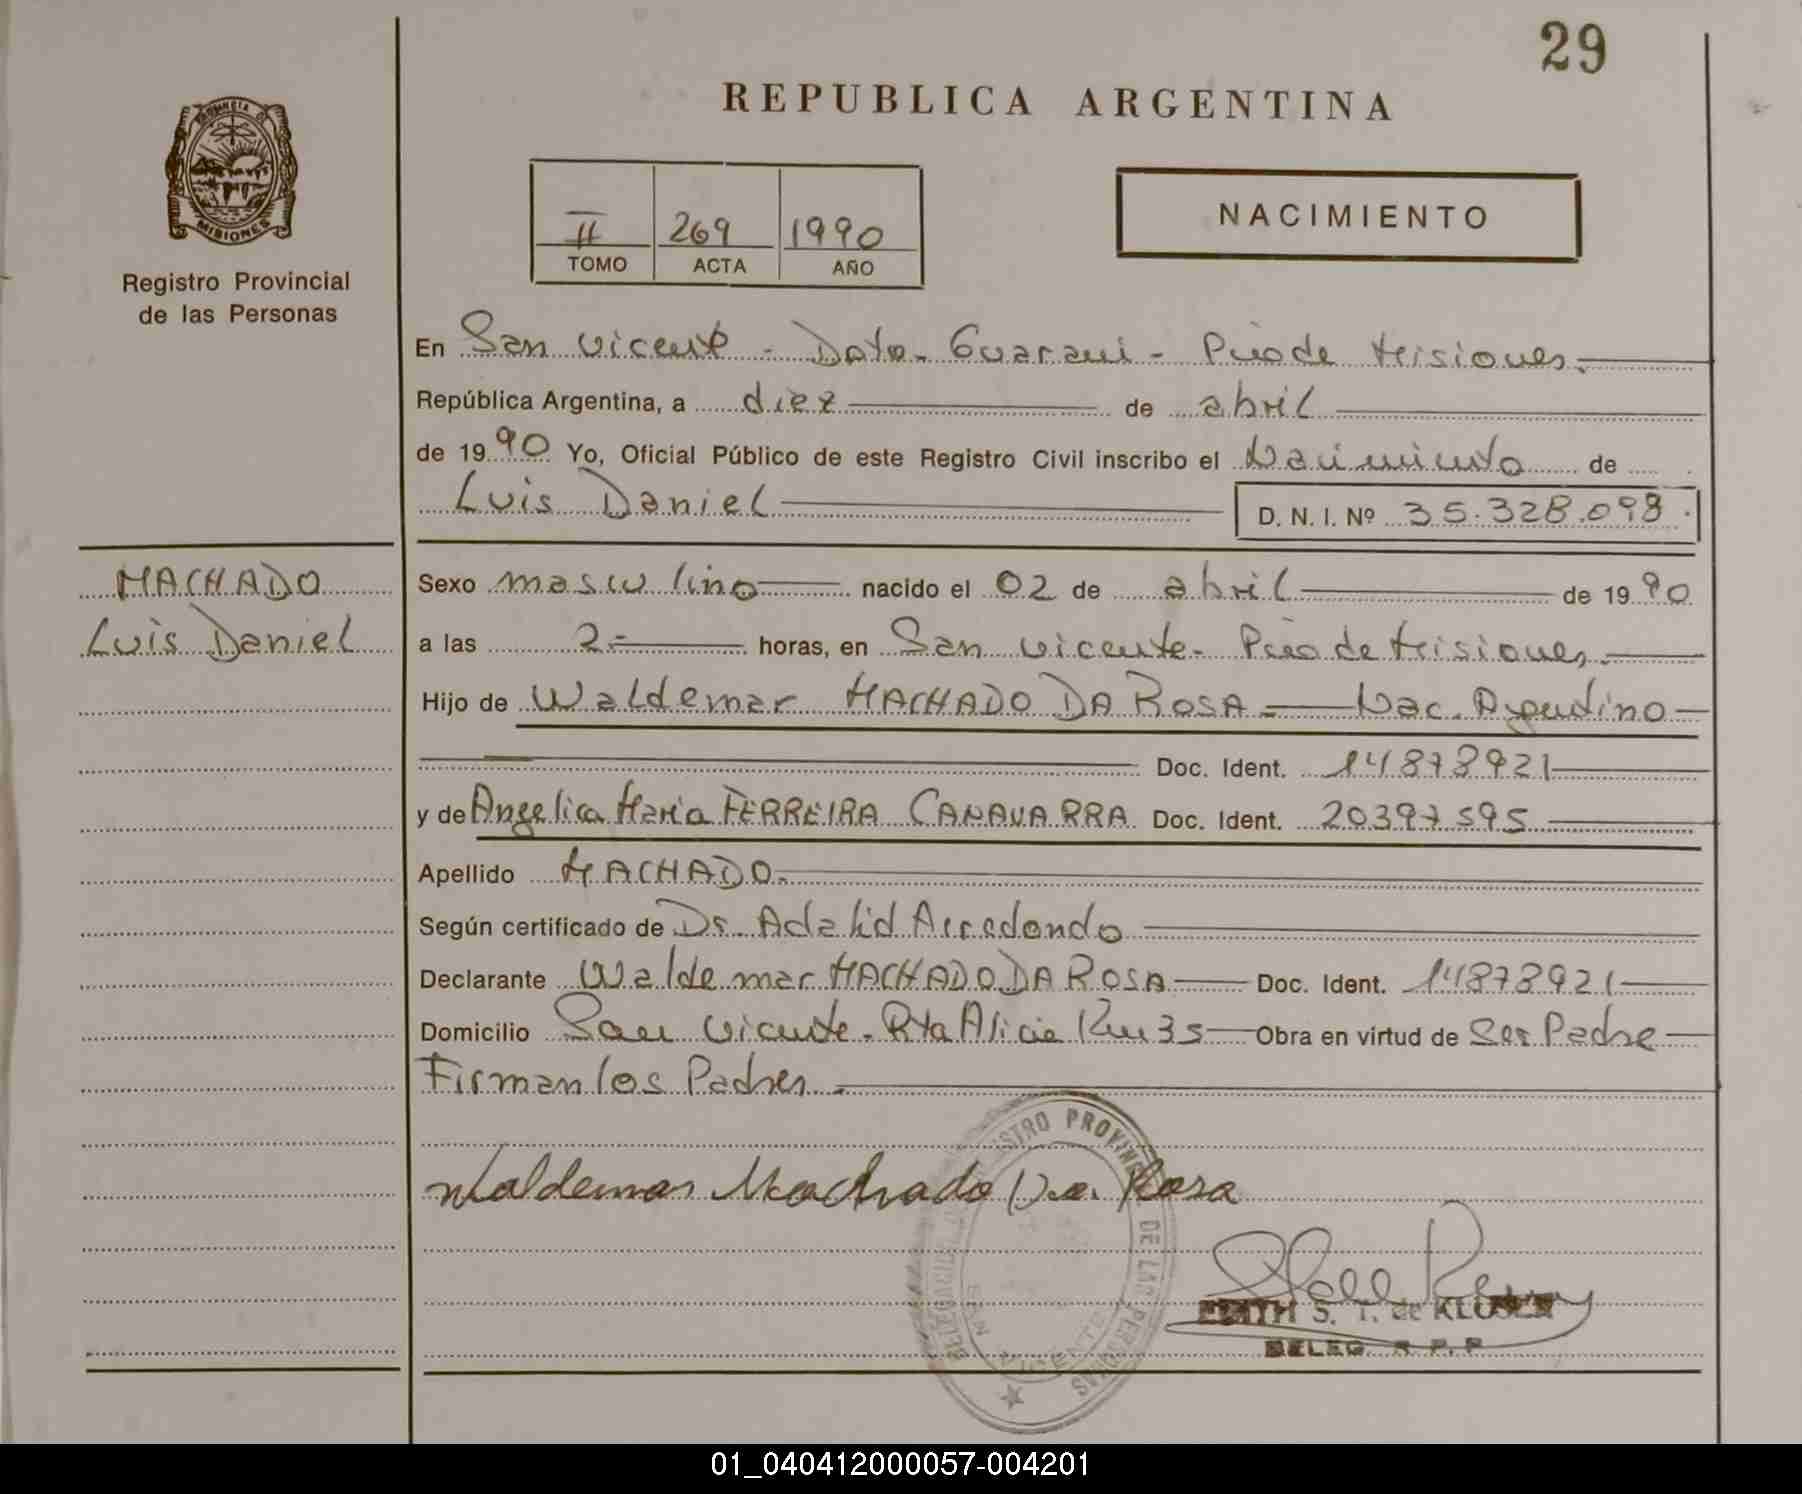 29
REPUBLICA ARGENTINA
PROVINCIA DE
MISIONES
Registro Provincial
de las Personas
II 269 1990
TOMO ACTA AÑO
NACIMIENTO
En San Vicente - Dpto. Guaraní - Pcia de Misiones.
República Argentina, a diez de abril
de 1990 Yo, Oficial Público de este Registro Civil inscribo el Nacimiento de
Luis Daniel D. N. I. Nº 35.328.098.
MACHADO
Luis Daniel
Sexo masculino nacido el 02 de abril de 1990
a las 2- horas, en San Vicente- Pcia de Misiones.
Hijo de Waldemar MACHADO DA ROSA - Nac. Argentino
Doc. Ident. 14878921
y de Angelica Maria FERREIRA CANAVARRA Doc. Ident. 20397595
Apellido MACHADO.
Según certificado de Dr. Adalid Arredondo
Declarante Waldemar MACHADO DA ROSA Doc. Ident. 14878921
Domicilio San Vicente - Rta Alicia Km 35 Obra en virtud de Ser Padre
Firman los Padres.
Waldemar Machado Da Rosa
DELEGACION REGISTRO PROVINCIAL DE LAS PERSONAS
SAN VICENTE
EDITH S. T. de
DELEG. R. P. P.
01_040412000057-004201